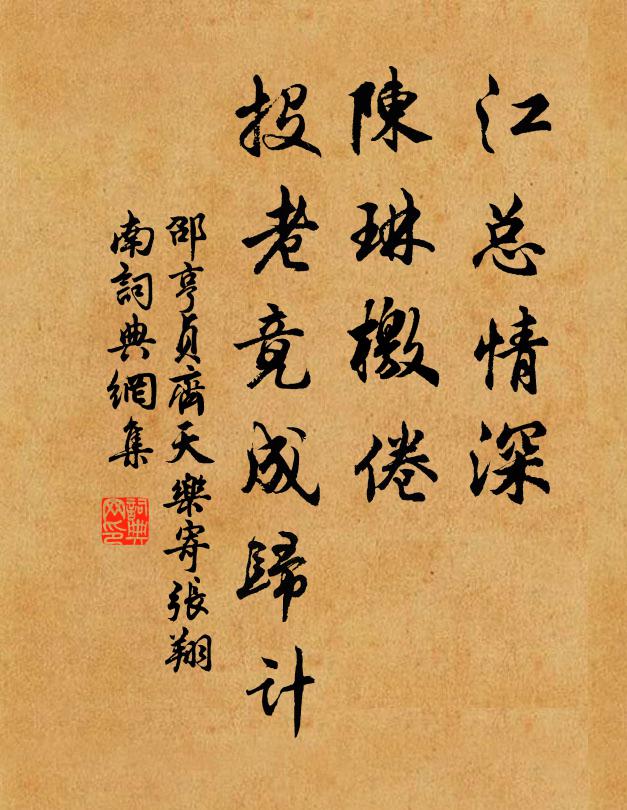 江总情深
陳琳檄倦
投老竟成歸計
邵亨貞齊天樂寄張翔
南詞典網集
詞典
网印